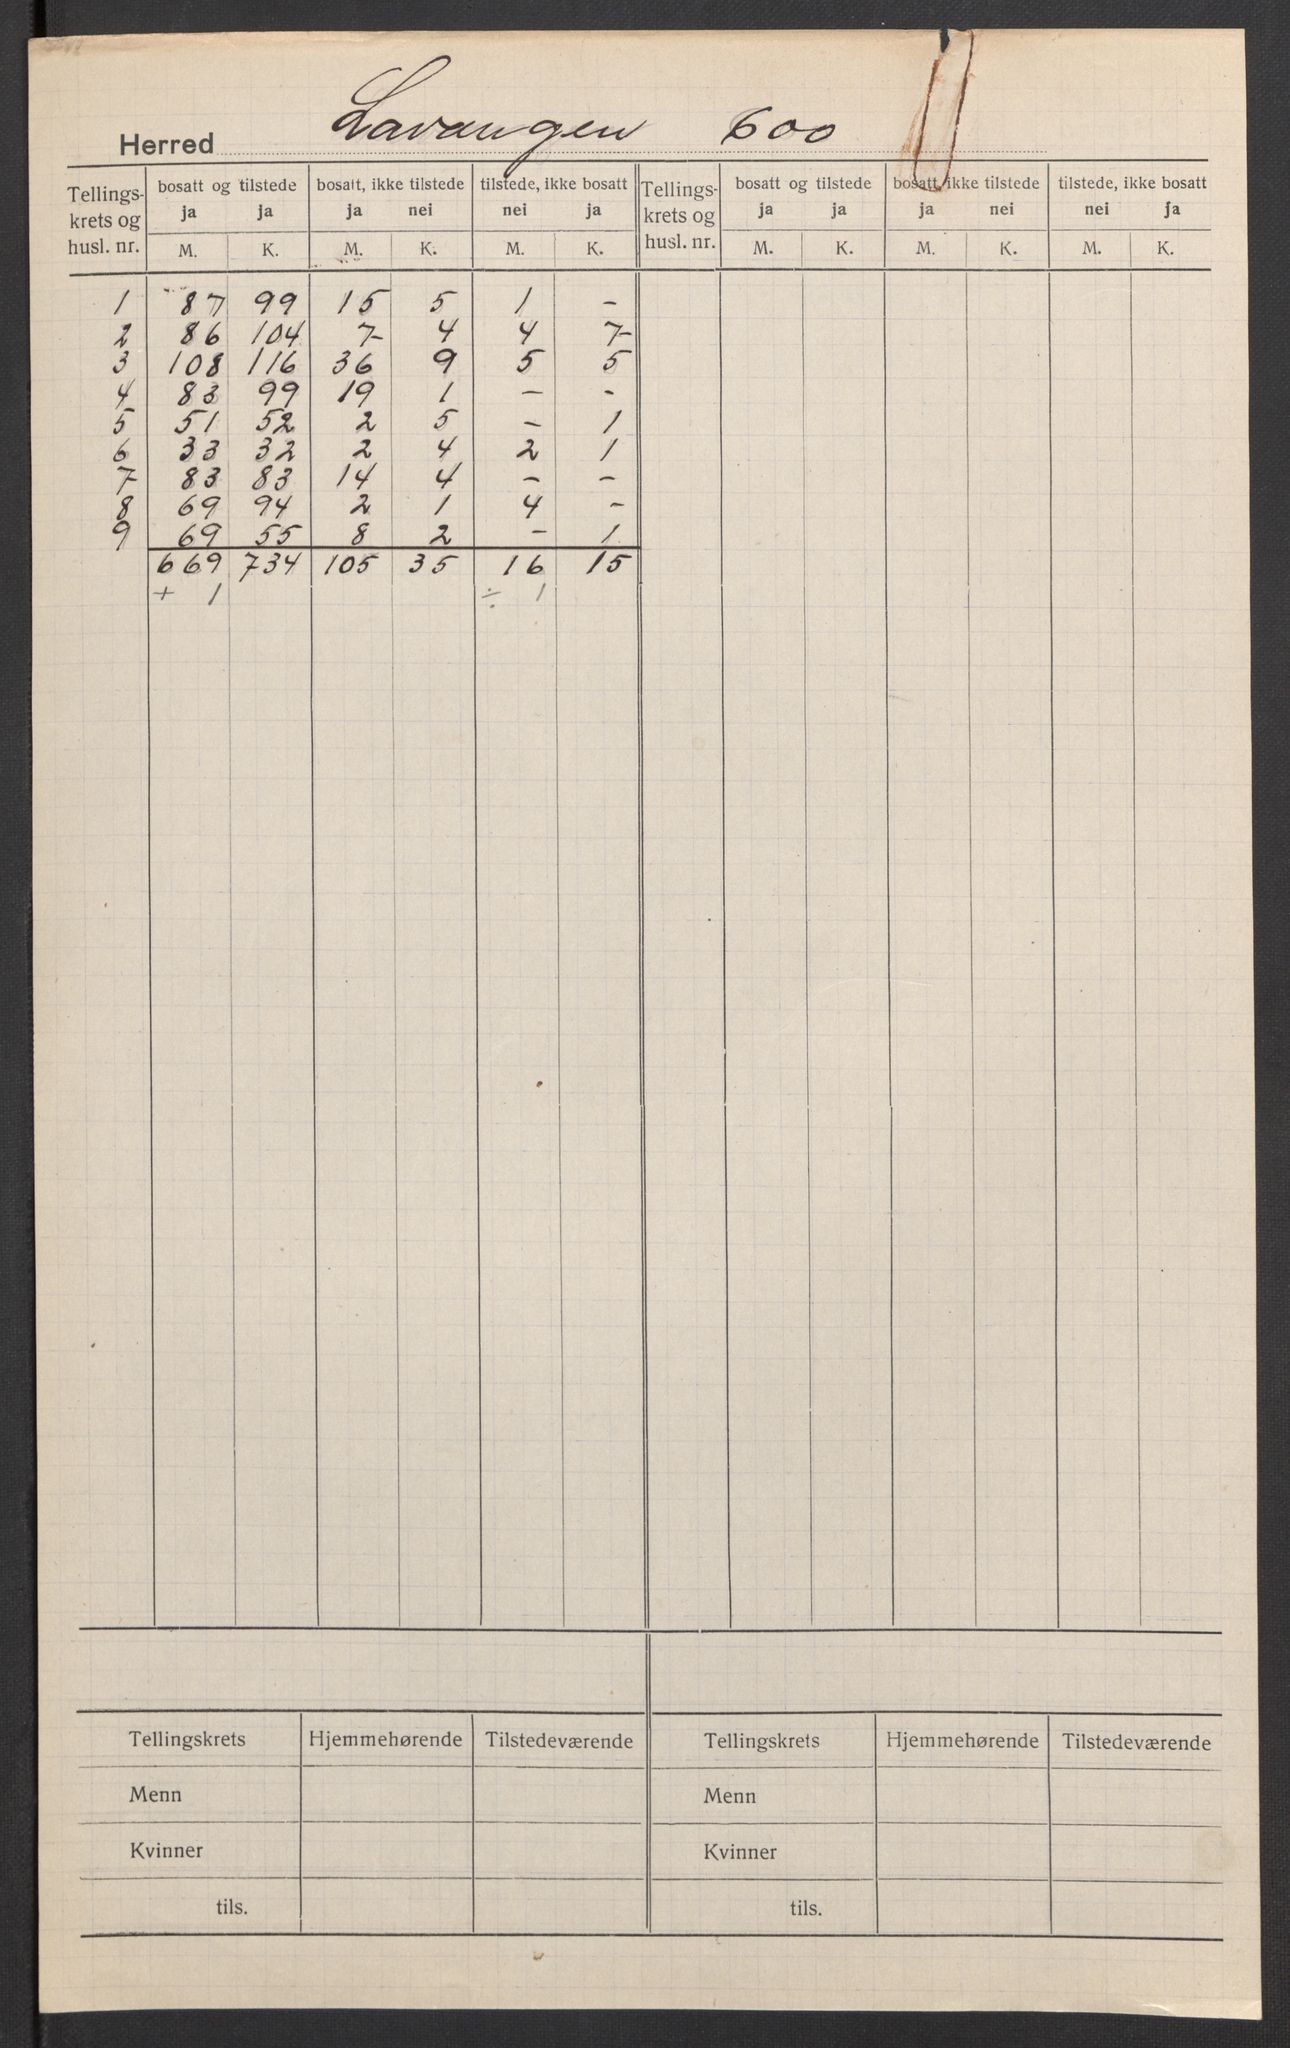 Herred Lavangen 600
Tellings-krets og husl. nr. | bosatt og tilstede | bosatt, ikke tilstede | tilstede, ikke bosatt | Tellings-krets og husl. nr. | bosatt og tilstede | bosatt, ikke tilstede | tilstede, ikke bosatt
ja ja ja nei nei ja ja ja ja nei nei ja
M. K. M. K. M. K. M. K. M. K. M. K.
1 87 99 15 5 1 -
2 86 104 7 4 4 7
3 108 116 36 9 5 5
4 83 99 19 1 - -
5 51 52 2 5 - 1
6 33 32 2 4 2 1
7 83 83 14 4 - -
8 69 94 2 1 4 -
9 69 55 8 2 - 1
669 734 105 35 16 15
+ 1 ÷ 1
Tellingskrets Hjemmehørende Tilstedeværende Tellingskrets Hjemmehørende Tilstedeværende
Menn Menn
Kvinner Kvinner
tils. tils.